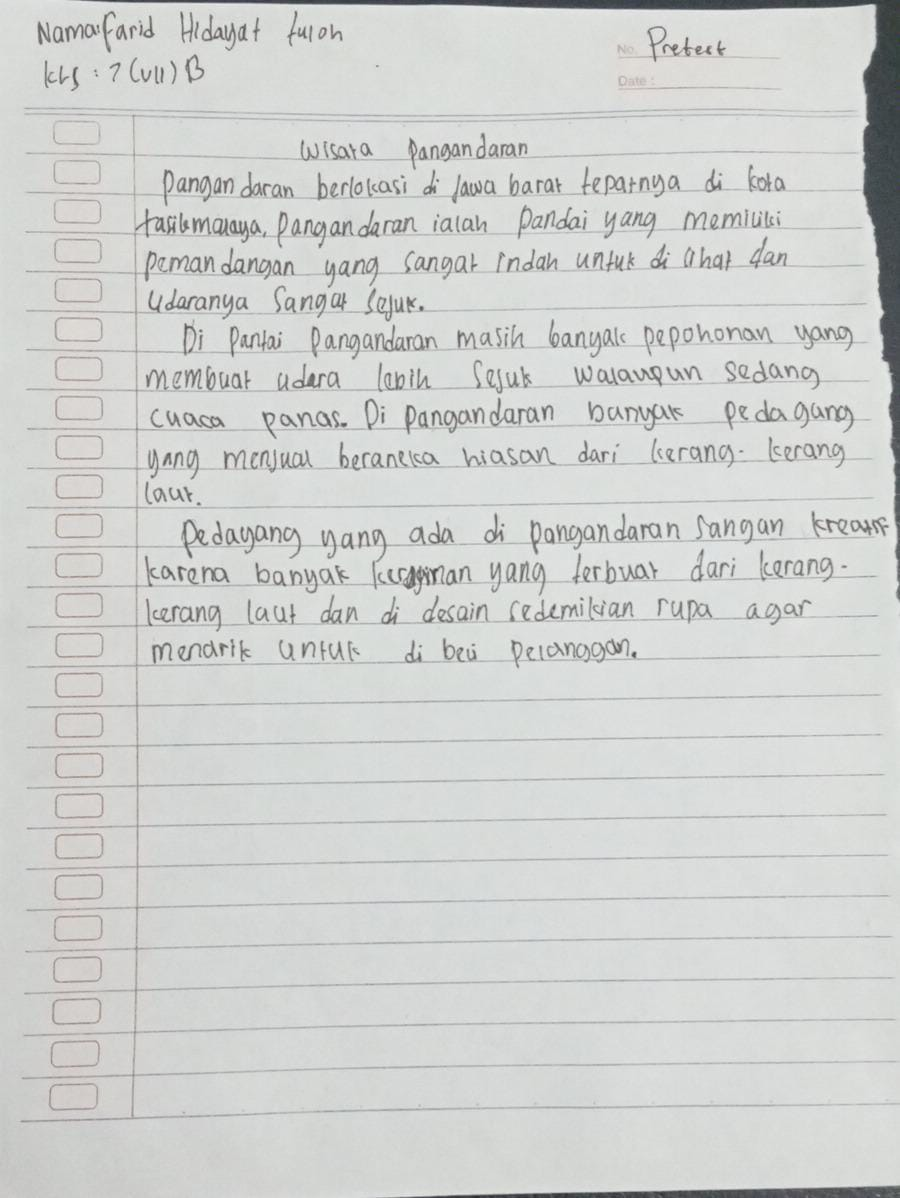 Nama: Farid Hidayat tuloh
kls : 7 (VII) B
No. Pretest
Date :
Wisata Pangandaran
Pangandaran berlokasi di Jawa barat tepatnya di kota
tasikmalaya, Pangandaran ialah Pandai yang memiliki
pemandangan yang sangat indah untuk di lihat dan
udaranya sangat sejuk.
Di Pantai Pangandaran masih banyak pepohonan yang
membuat udara lebih sejuk walaupun sedang
cuaca panas. Di Pangandaran banyak pedagang
yang menjual beraneka hiasan dari kerang-kerang
laut.
Pedagang yang ada di pangandaran sangan kreatif
karena banyak kerajinan yang terbuat dari kerang-
kerang laut dan di desain sedemikian rupa agar
mendrik untuk di beli pelanggan.